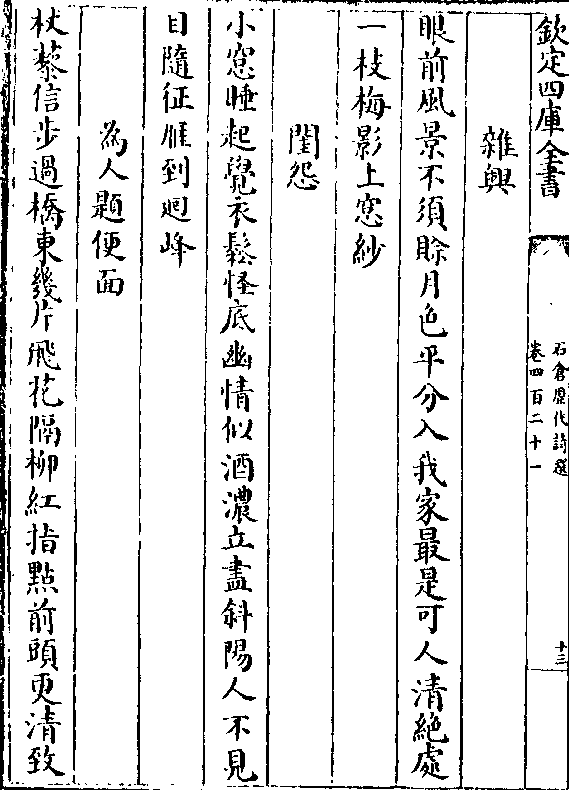 欽定四庫全書
石倉歷代詩選
卷四百二十一
十三
雜興
眼前風景不須賖月色平分入我家最是可人清絶處
一枝梅影上窓紗
閨怨
小窓睡起覺衣鬆怪底幽情似酒濃立盡斜陽人不見
目隨征雁到迴峰
為人題便面
杖藜信步過橋東幾片飛花隔柳紅指點前頭更清致